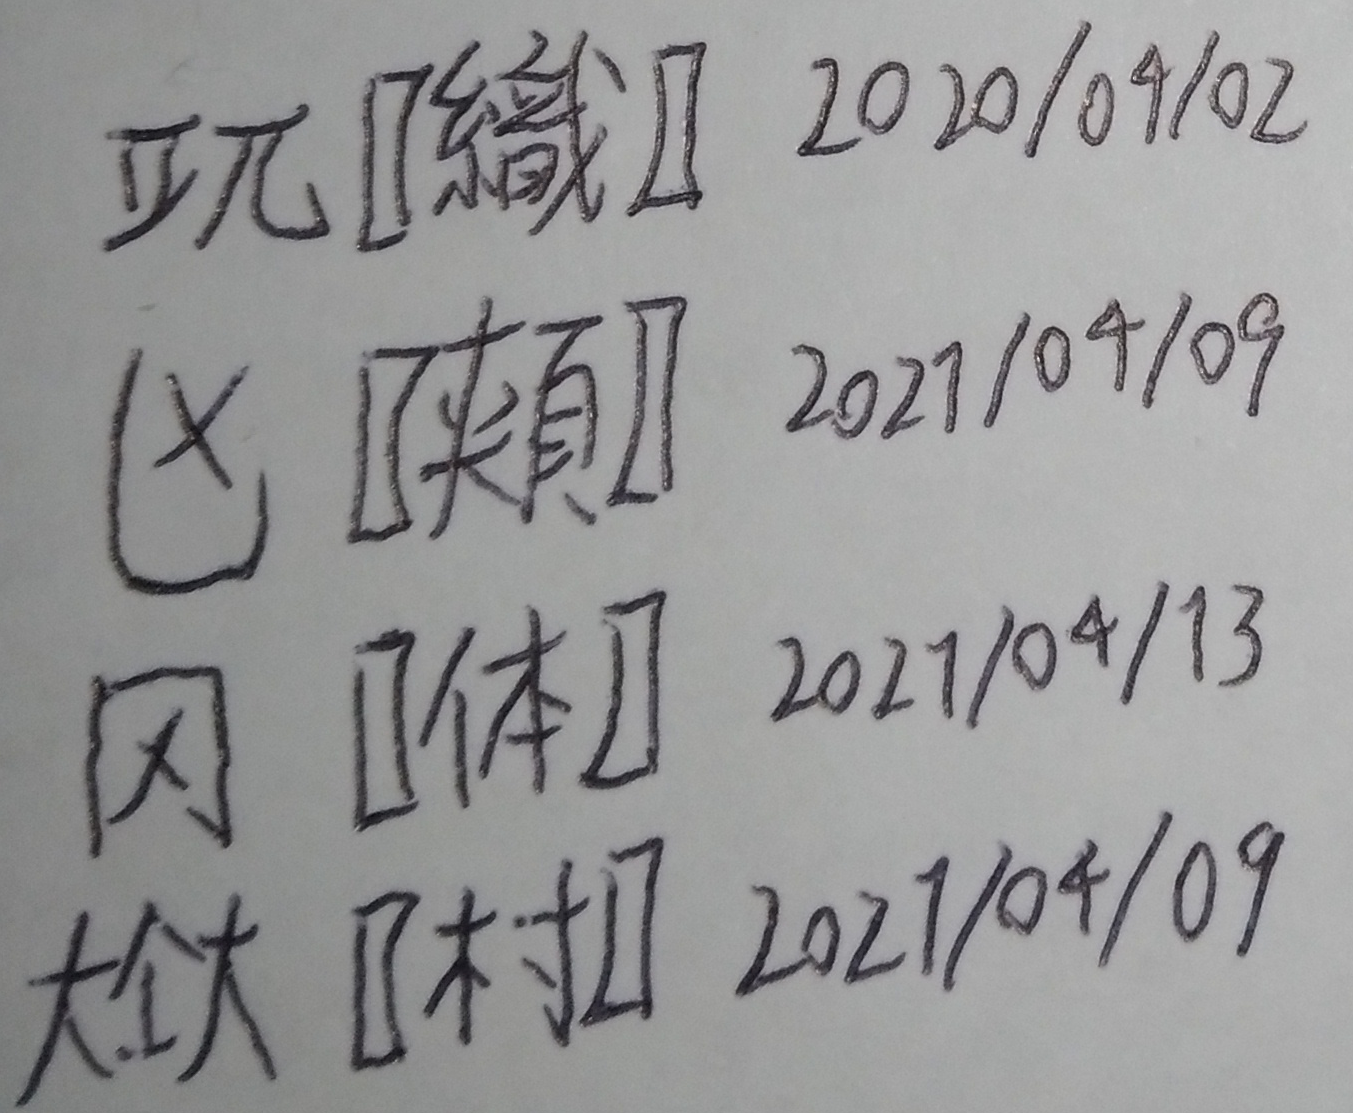 〚織〛 2020/04/02
〚頰〛 2021/04/09
〚体〛 2021/04/13
〚村〛 2021/04/09